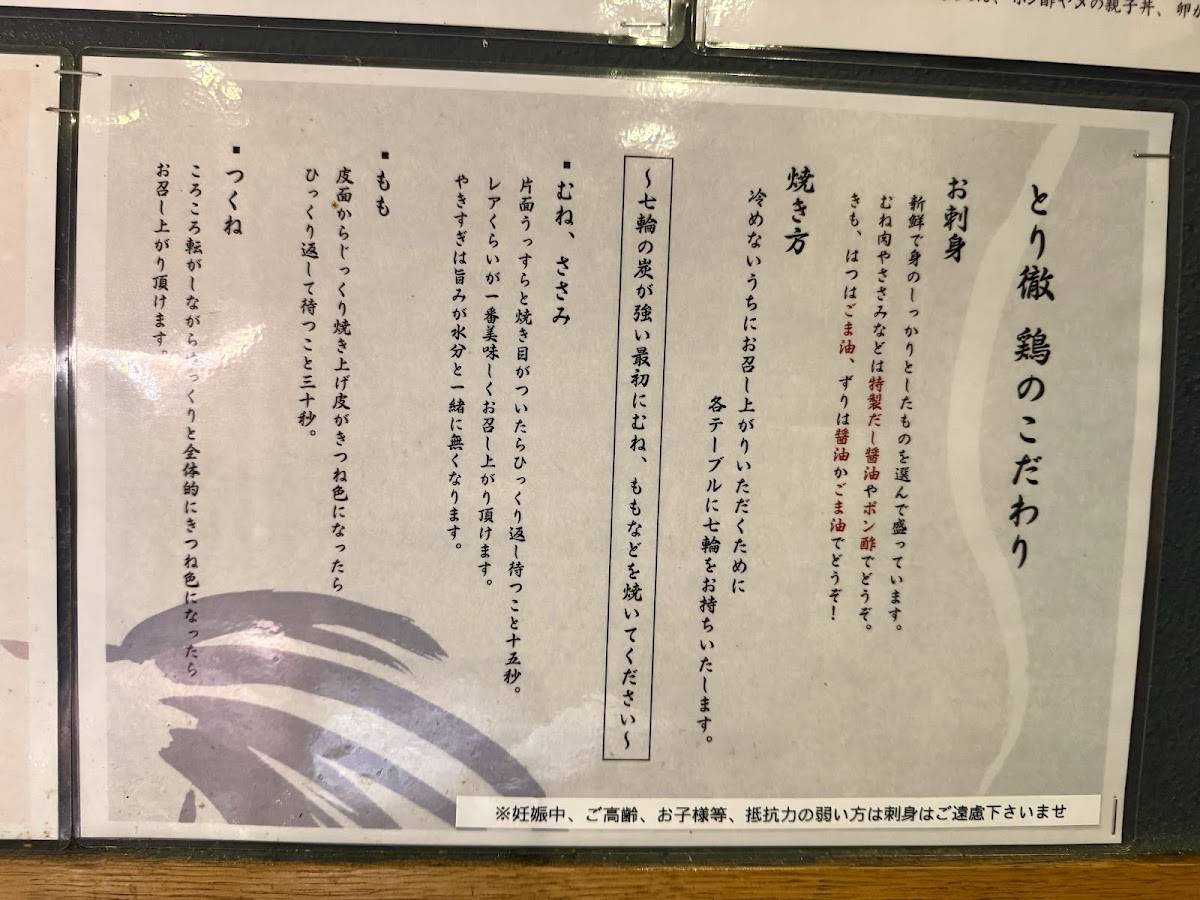 ポン酢ヤメの親子丼、卵か
とり徹 鶏のこだわり
お刺身
新鮮で身のしっかりとしたものを選んで盛っています。
むね肉やささみなどは特製だし醤油やポン酢でどうぞ。
きも、はつはごま油、ずりは醤油かごま油でどうぞ！
焼き方
冷めないうちにお召し上がりいただくために
各テーブルに七輪をお持ちいたします。
〜七輪の炭が強い最初にむね、ももなどを焼いてください〜
▪むね、ささみ
片面うっすらと焼き目がついたらひっくり返し待つこと十五秒。
レアくらいが一番美味しくお召し上がり頂けます。
やきすぎは旨みが水分と一緒に無くなります。
▪もも
皮面からじっくり焼き上げ皮がきつね色になったら
ひっくり返して待つこと三十秒。
▪つくね
ころころ転がしながらじっくりと全体的にきつね色になったら
お召し上がり頂けます。
※妊娠中、ご高齢、お子様等、抵抗力の弱い方は刺身はご遠慮下さいませ